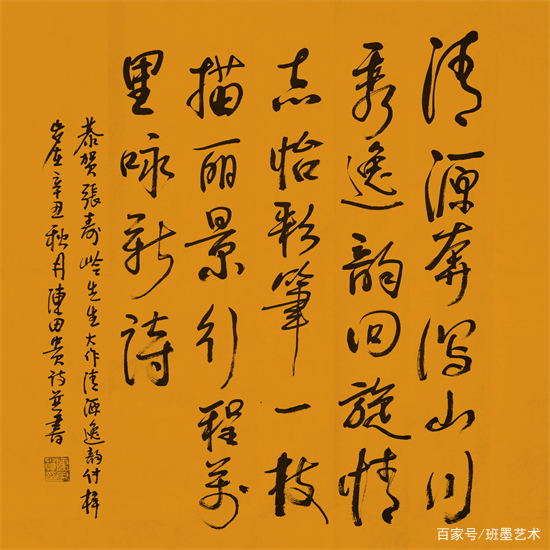 清源奔瀉山川
秀逸韵回旋情
志怡彩筆一枝
描丽景行程萬
里咏新詩
恭贺張寿岭先生大作清源逸韵付梓
岁在辛丑秋月陳田贵诗并書
百家号/班墨艺术